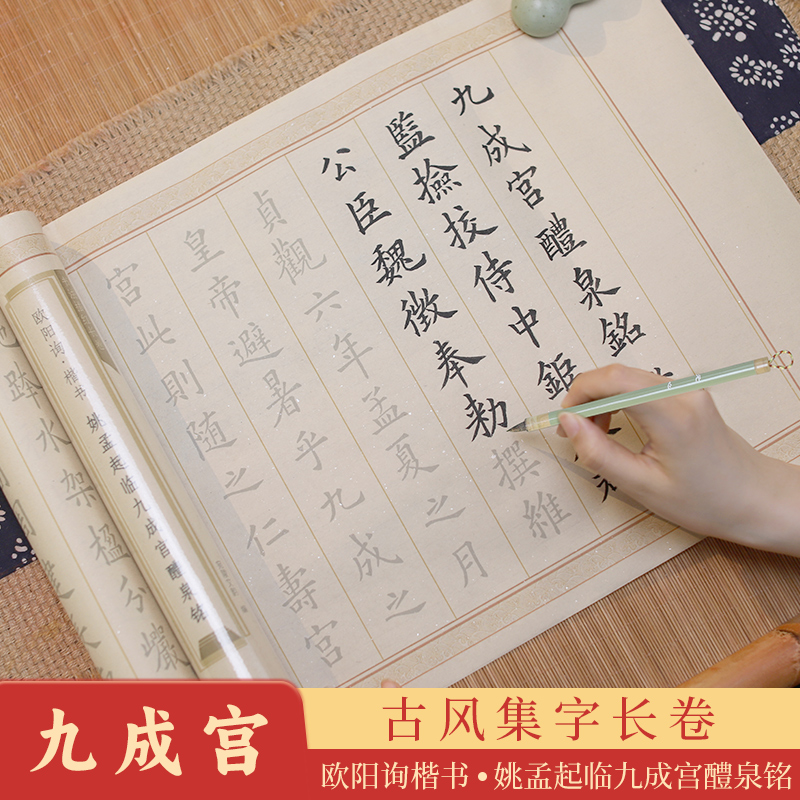 九成宮醴泉銘
監撿挍侍中鉅
公臣魏徵奉勑撰維
貞觀六年孟夏之月
皇帝避暑乎九成之
宮此則隨之仁壽宮
跨水架楹分巖
欧阳询·楷书 姚孟起临九成宫醴泉铭
九成宫
古风集字长卷
欧阳询楷书•姚孟起临九成宫醴泉铭